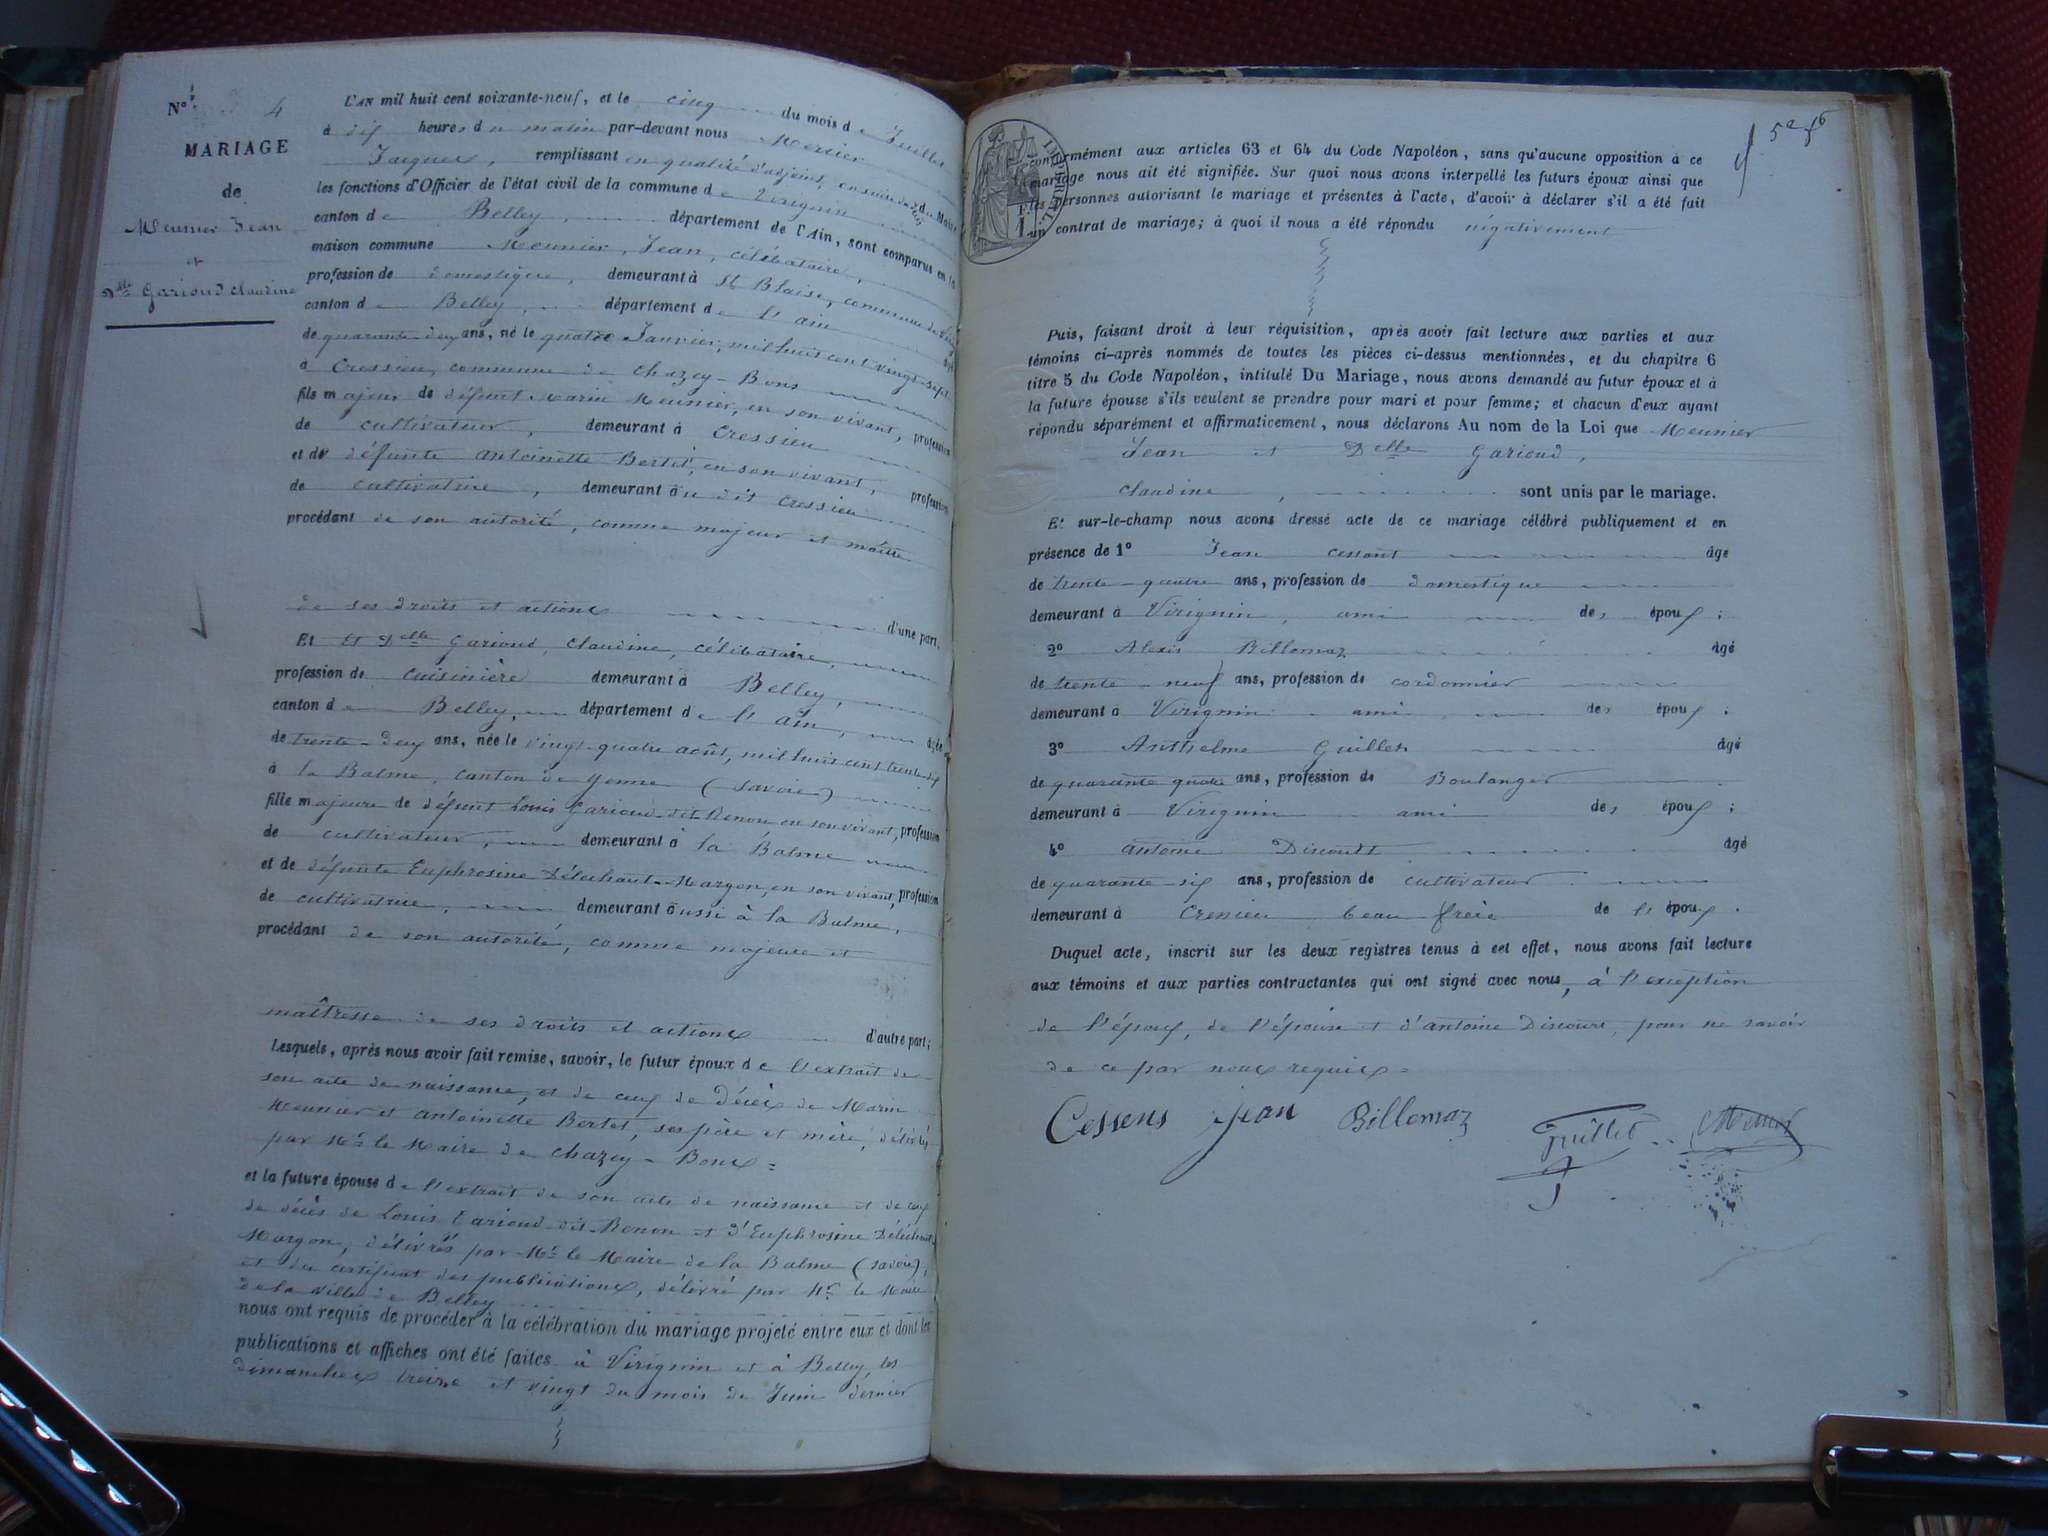 N° 4
MARIAGE
de
Meunier Jean
et
Dlle Garioud Claudine
L'AN mil huit cent soixante-neuf, et le cinq du mois de Juillet
à dix heures du matin par-devant nous Mercier
Jacques, remplissant en qualité d'adjoint, du Maire
les fonctions d'Officier de l'état civil de la commune de Virignin
canton de Belley, département de l'Ain, sont comparus en la
maison commune Meunier, Jean, célibataire,
profession de domestique, demeurant à St Blaise, commune de
canton de Belley, département de l'ain âgé
de quarante-deux ans, né le quatre Janvier, mil huit cent vingt-sept
à Cressieu, commune de Chazey-Bons
fils majeur de défunt Marin Meunier, en son vivant, profession
de cultivateur, demeurant à Cressieu
et de défunte Antoinette Bertet, en son vivant, profession
de cultivatrice, demeurant au dit Cressieu
procédant de son autorité, comme majeur et maître
de ses droits et actions d'une part,
Et Et Dlle Garioud, Claudine, célibataire,
profession de cuisinière demeurant à Belley,
canton de Belley, département de l'ain, âgée
de trente-deux ans, née le vingt-quatre août, mil huit cent trente-six
à la Balme, canton de Yenne (Savoie)
fille majeure de défunt Louis Garioud-dit-Renon en son vivant, profession
de cultivateur, demeurant à la Balme
et de défunte Euphrosine Déléchaut-Margon, en son vivant, profession
de cultivatrice, demeurant aussi à la Balme,
procédant de son autorité, comme majeure et
maîtresse de ses droits et actions d'autre part;
Lesquels, après nous avoir fait remise, savoir, le futur époux de l'extrait de
son acte de naissance, et de ceux de décès de Marin
Meunier et Antoinette Bertet, ses père et mère, délivrés
par Mr le Maire de Chazey-Bons =
et la future épouse de l'extrait de son acte de naissance et de ceux
de décès de Louis Garioud-dit-Renon et d'Euphrosine Déléchaut
Margon, délivrés par Mr le Maire de la Balme (Savoie),
et du certificat des publications, délivré par Mr le Maire
de la ville de Belley
nous ont requis de procéder à la célébration du mariage projeté entre eux et dont les
publications et affiches ont été faites à Virignin et à Belley les
dimanches treize et vingt du mois de Juin dernier
IMPERIAL
1 F.
conformément aux articles 63 et 64 du Code Napoléon, sans qu'aucune opposition à ce
mariage nous ait été signifiée. Sur quoi nous avons interpellé les futurs époux ainsi que
les personnes autorisant le mariage et présentes à l'acte, d'avoir à déclarer s'il a été fait
un contrat de mariage; à quoi il nous a été répondu négativement
Puis, faisant droit à leur réquisition, après avoir fait lecture aux parties et aux
témoins ci-après nommés de toutes les pièces ci-dessus mentionnées, et du chapitre 6
titre 5 du Code Napoléon, intitulé Du Mariage, nous avons demandé au futur époux et à
la future épouse s'ils veulent se prendre pour mari et pour femme; et chacun d'eux ayant
répondu séparément et affirmativement, nous déclarons Au nom de la Loi que Meunier
Jean et Delle Garioud,
Claudine, sont unis par le mariage.
Et sur-le-champ nous avons dressé acte de ce mariage célébré publiquement et en
présence de 1° Jean Cessant âgé
de trente-quatre ans, profession de domestique
demeurant à Virignin, ami des époux;
2° Alexis Billemaz âgé
de trente-neuf ans, profession de cordonnier
demeurant à Virignin ami des époux;
3° Anthelme Guillet âgé
de quarante quatre ans, profession de Boulanger
demeurant à Virignin ami des époux;
4° Antoine Discourt âgé
de quarante-six ans, profession de cultivateur
demeurant à beau frère de l'époux.
Duquel acte, inscrit sur les deux registres tenus à cet effet, nous avons fait lecture
aux témoins et aux parties contractantes qui ont signé avec nous, à l'exception
de l'époux, de l'épouse et d'antoine Discourt, pour ne savoir
de ce par nous requis =
Cessens Jean Billemaz Guillet Mercier